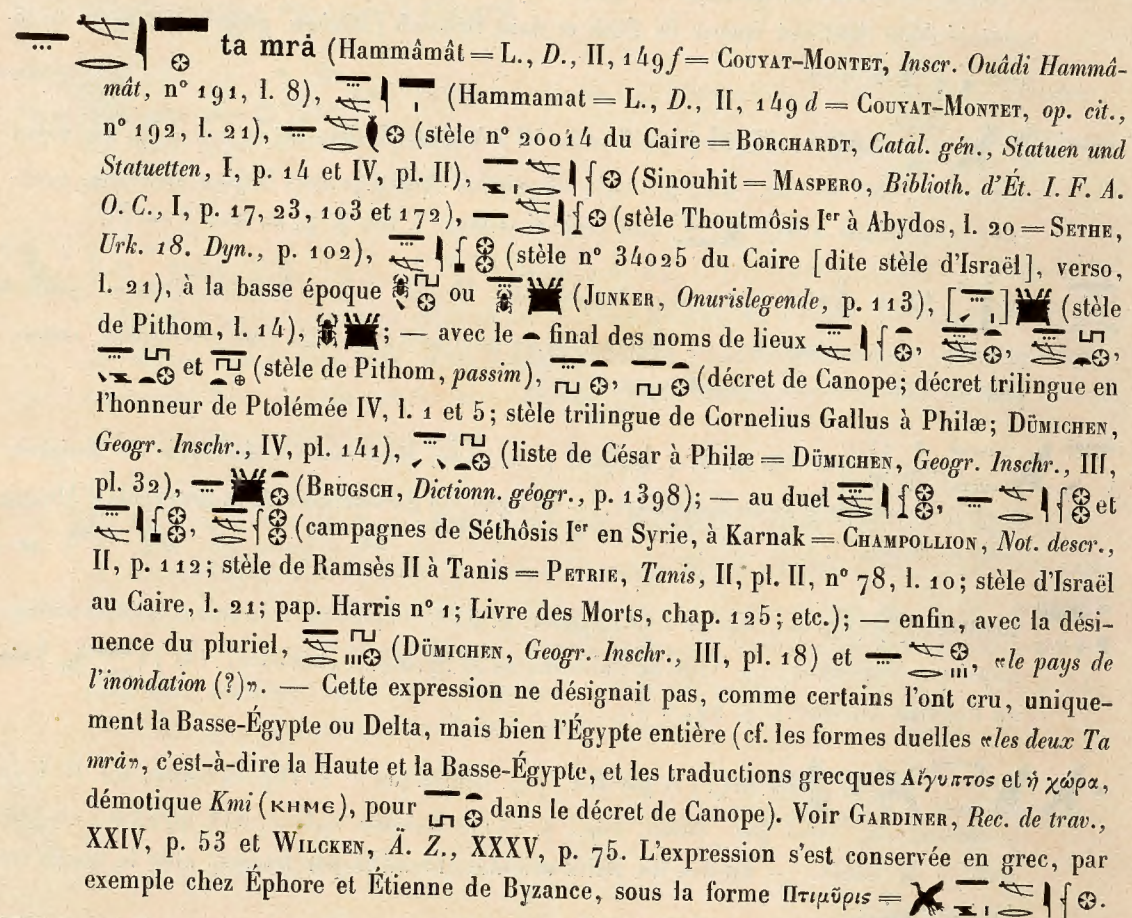 ta mrȧ (Hammâmât = L., D., II, 149 f = COUYAT-MONTET, Inscr. Ouâdi Hammâ-
mât, n° 191, l. 8), (Hammamat = L., D., II, 149 d = COUYAT-MONTET, op. cit.,
n° 192, l. 21), (stèle n° 20014 du Caire = BORCHARDT, Catal. gén., Statuen und
Statuetten, I, p. 14 et IV, pl. II), (Sinouhit = MASPERO, Biblioth. d'Ét. I. F. A.
O. C., I, p. 17, 23, 103 et 172), (stèle Thoutmôsis Ier à Abydos, l. 20 = SETHE,
Urk. 18. Dyn., p. 102), (stèle n° 34025 du Caire [dite stèle d'Israël], verso,
l. 21), à la basse époque ou (JUNKER, Onurislegende, p. 113), [ ] (stèle
de Pithom, l. 14), ; — avec le final des noms de lieux , , ,
et (stèle de Pithom, passim), , (décret de Canope; décret trilingue en
l'honneur de Ptolémée IV, l. 1 et 5; stèle trilingue de Cornelius Gallus à Philæ; DÜMICHEN,
Geogr. Inschr., IV, pl. 141), (liste de César à Philæ = DÜMICHEN, Geogr. Inschr., III,
pl. 32), (BRUGSCH, Dictionn. géogr., p. 1398); — au duel , et
, (campagnes de Séthôsis Ier en Syrie, à Karnak = CHAMPOLLION, Not. descr.,
II, p. 112; stèle de Ramsès II à Tanis = PETRIE, Tanis, II, pl. II, n° 78, l. 10; stèle d'Israël
au Caire, l. 21; pap. Harris n° 1; Livre des Morts, chap. 125; etc.); — enfin, avec la dési-
nence du pluriel, (DÜMICHEN, Geogr. Inschr., III, pl. 18) et , «le pays de
l'inondation (?)». — Cette expression ne désignait pas, comme certains l'ont cru, unique-
ment la Basse-Égypte ou Delta, mais bien l'Égypte entière (cf. les formes duelles «les deux Ta
mrȧ», c'est-à-dire la Haute et la Basse-Égypte, et les traductions grecques Αἴγυπτος et ἡ χώρα,
démotique Kmi (ⲕⲏⲙⲉ), pour dans le décret de Canope). Voir GARDINER, Rec. de trav.,
XXIV, p. 53 et WILCKEN, Ä. Z., XXXV, p. 75. L'expression s'est conservée en grec, par
exemple chez Éphore et Étienne de Byzance, sous la forme Πτιμῦρις = .